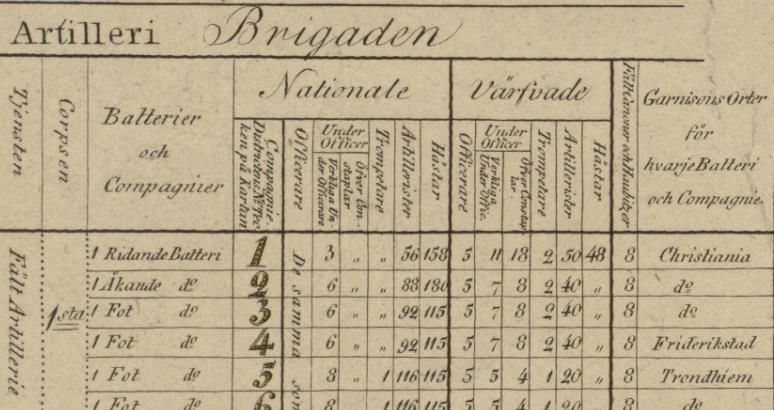 Artilleri Brigaden
Tjensten
Corpsen
Batterier
och
Compagnier
Nationale
Värfvade
Compagnie
Officerare
Under
Officer
Trompetare
Artillerister
Hästar
Officerare
Under
Officer
Trompetare
Artillerister
Hästar
Fält Canoner och Haubitzer
Garnisons Orter
för
hvarje Batteri
och Compagnie.
Fält Artillerie
1sta
De samma som
1 Ridande Batteri 1 3 „ „ 56 158 5 11 18 2 50 48 8 Christiania
1 Åkande do 2 6 „ „ 88 180 5 7 8 2 40 „ 8 do
1 Fot do 3 6 „ „ 92 115 5 7 8 2 40 „ 8 do
1 Fot do 4 6 „ „ 92 115 5 7 8 2 40 „ 8 Friderikstad
1 Fot do 5 8 „ 1 116 115 5 5 4 1 20 „ 8 Trondhiem
1 Fot do 6 8 1 116 115 5 5 4 1 20 „ 8 do